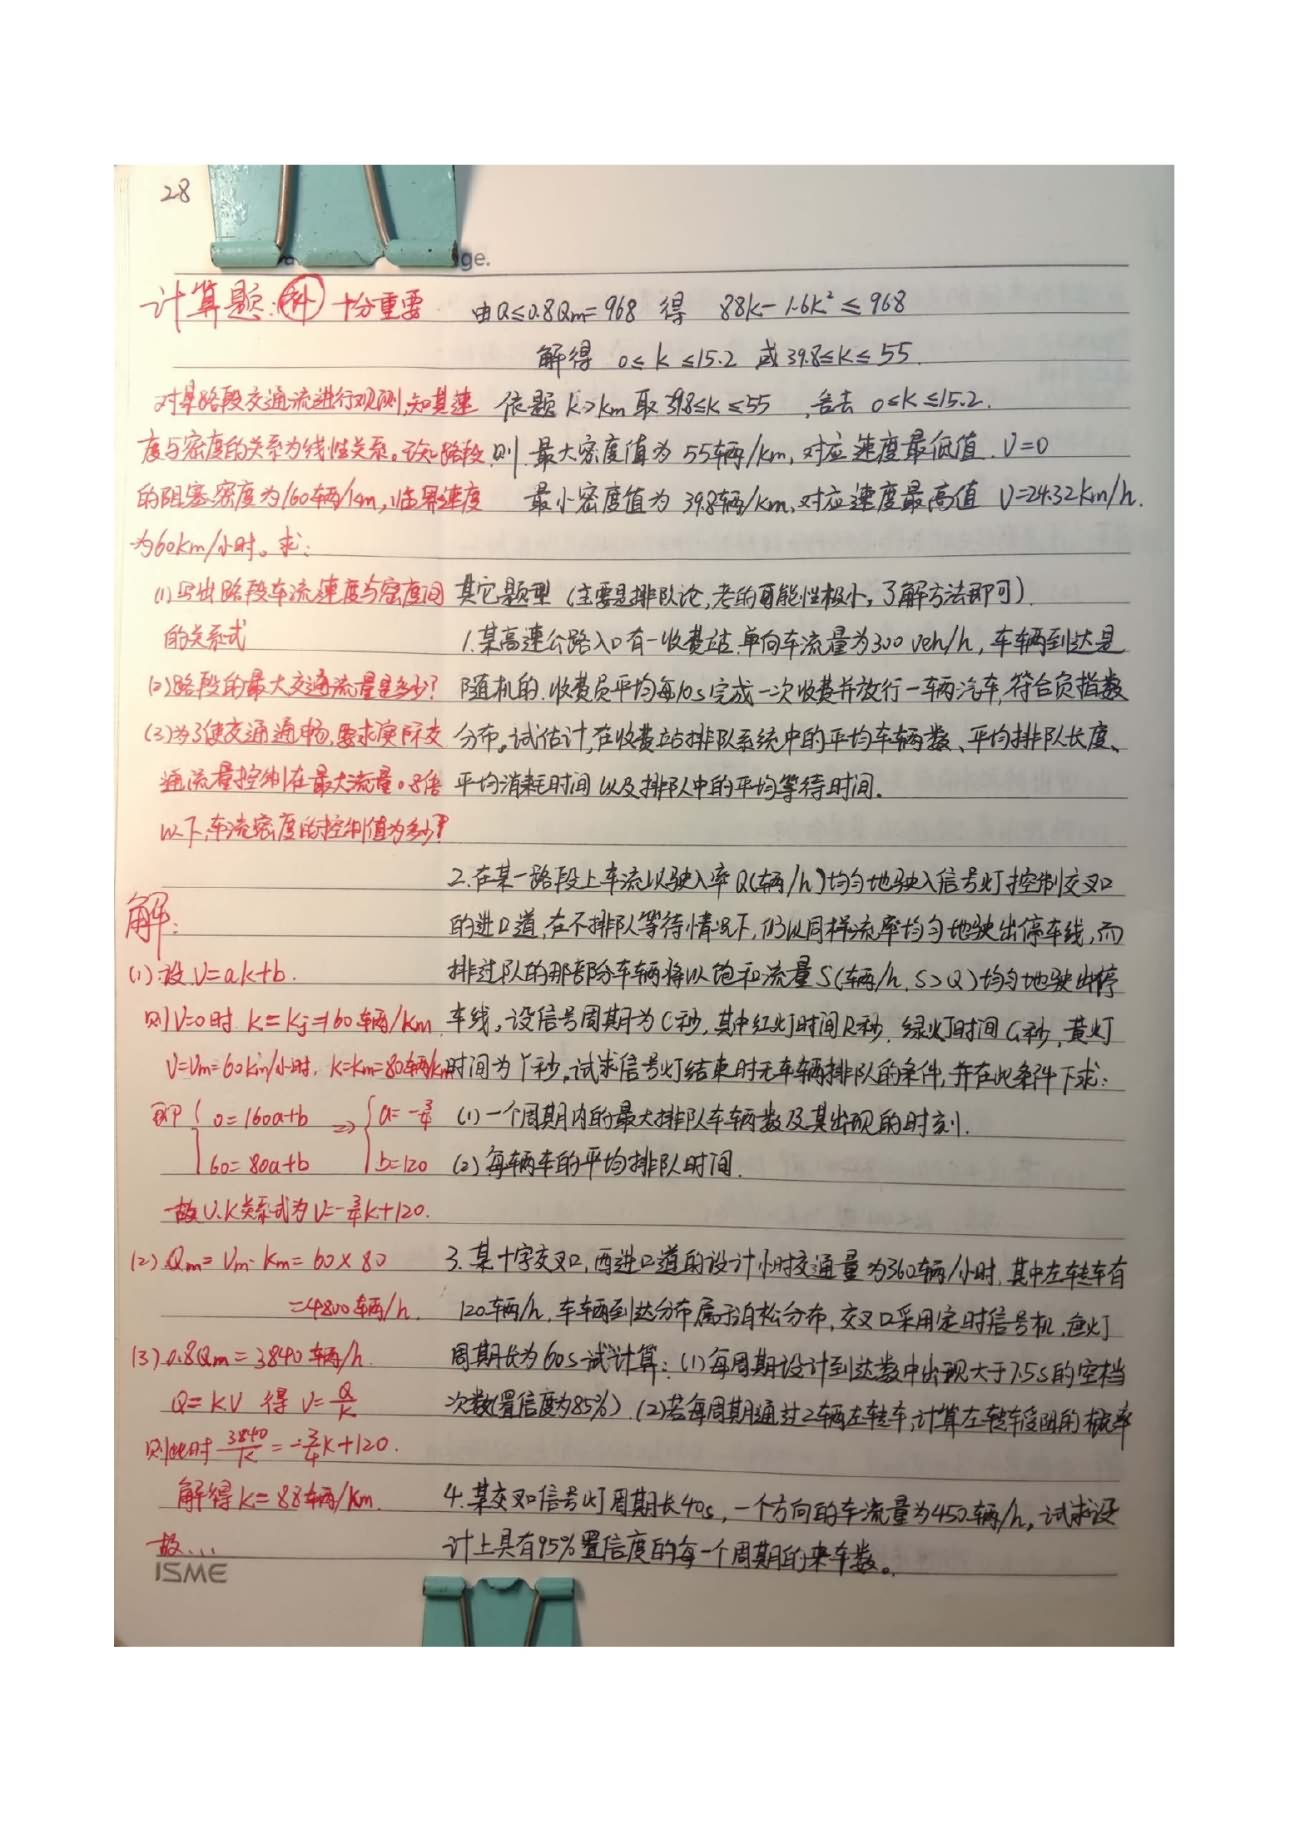 28
ge.
计算题:(补) 十分重要
对某路段交通流进行观测,知其速
度与密度的关系为线性关系。已知路段
的阻塞密度为160辆/km,临界速度
为60km/小时。求:
(1)写出路段车流速度与密度间
的关系式
(2)路段的最大交通流量是多少?
(3)为了使交通通畅,要求实际交
通流量控制在最大流量0.8倍
以下,车流密度的控制值为多少?
解:
(1).设 V=ak+b.
则V=0时 K=Kj=160辆/Km
V=Vm=60km/小时. K=Km=80辆/km
即 { 0=160a+b ⇒ { a=-3/4
60=80a+b b=120
故V.K关系式为V=-3/4K+120.
(2).Qm=Vm·Km=60×80
=4800辆/h.
(3).0.8Qm=3840辆/h.
Q=KV 得 V=Q/K
则此时 3840/K=-3/4K+120.
解得K=88辆/Km.
故...
ISME
由Q≤0.8Qm=968 得 88K-1.6K²≤968
解得 0≤K≤15.2 或39.8≤K≤55.
依题 K>Km 取 39.8≤K≤55 ,舍去 0≤K≤15.2.
则 最大密度值为 55辆/Km,对应速度最低值.V=0
最小密度值为 39.8辆/Km,对应速度最高值 V=24.32Km/h.
其它题型(主要是排队论,考的可能性极小,了解方法即可)
1.某高速公路入口有一收费站.单向车流量为300 veh/h,车辆到达是
随机的.收费员平均每10s完成一次收费并放行一辆汽车,符合负指数
分布。试估计,在收费站排队系统中的平均车辆数、平均排队长度、
平均消耗时间以及排队中的平均等待时间.
2.在某一路段上车流以驶入率Q(辆/h)均匀地驶入信号灯控制交叉口
的进口道,在不排队等待情况下,仍以同样流率均匀地驶出停车线,而
排过队的那部分车辆将以饱和流量S(辆/h.S>Q)均匀地驶出停
车线。设信号周期为C秒,其中红灯时间R秒,绿灯时间G秒,黄灯
时间为r秒。试求信号灯结束时无车辆排队的条件,并在此条件下求:
(1)一个周期内的最大排队车辆数及其出现的时刻.
(2)每辆车的平均排队时间.
3.某十字交叉口,西进口道的设计小时交通量为360辆/小时.其中左转车有
120辆/h.车辆到达分布属于泊松分布,交叉口采用定时信号机.色灯
周期长为60s试计算:(1)每周期设计到达数中出现大于7.5s的空档
次数(置信度为85%).(2)若每周期通过2辆左转车,计算左转车受阻的概率
4.某交叉口信号灯周期长40s,一个方向的车流量为450辆/h。试求设
计上具有95%置信度的每一个周期的来车数。